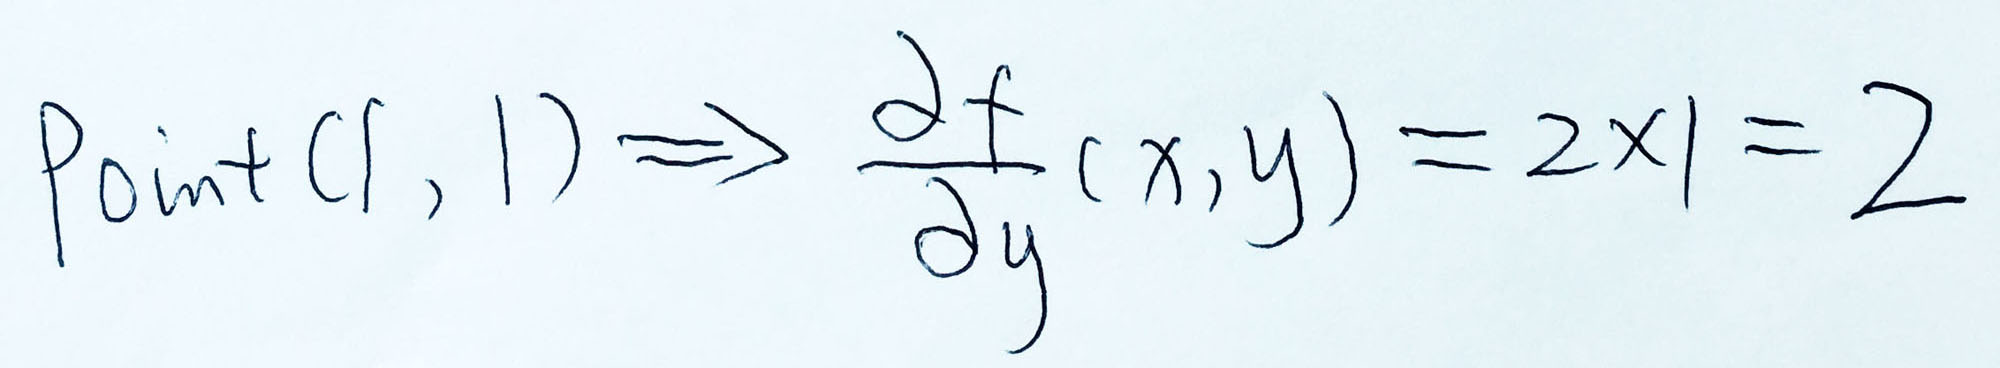 Point (1, 1) ⇒ ∂f/∂y (x, y) = 2×1 = 2